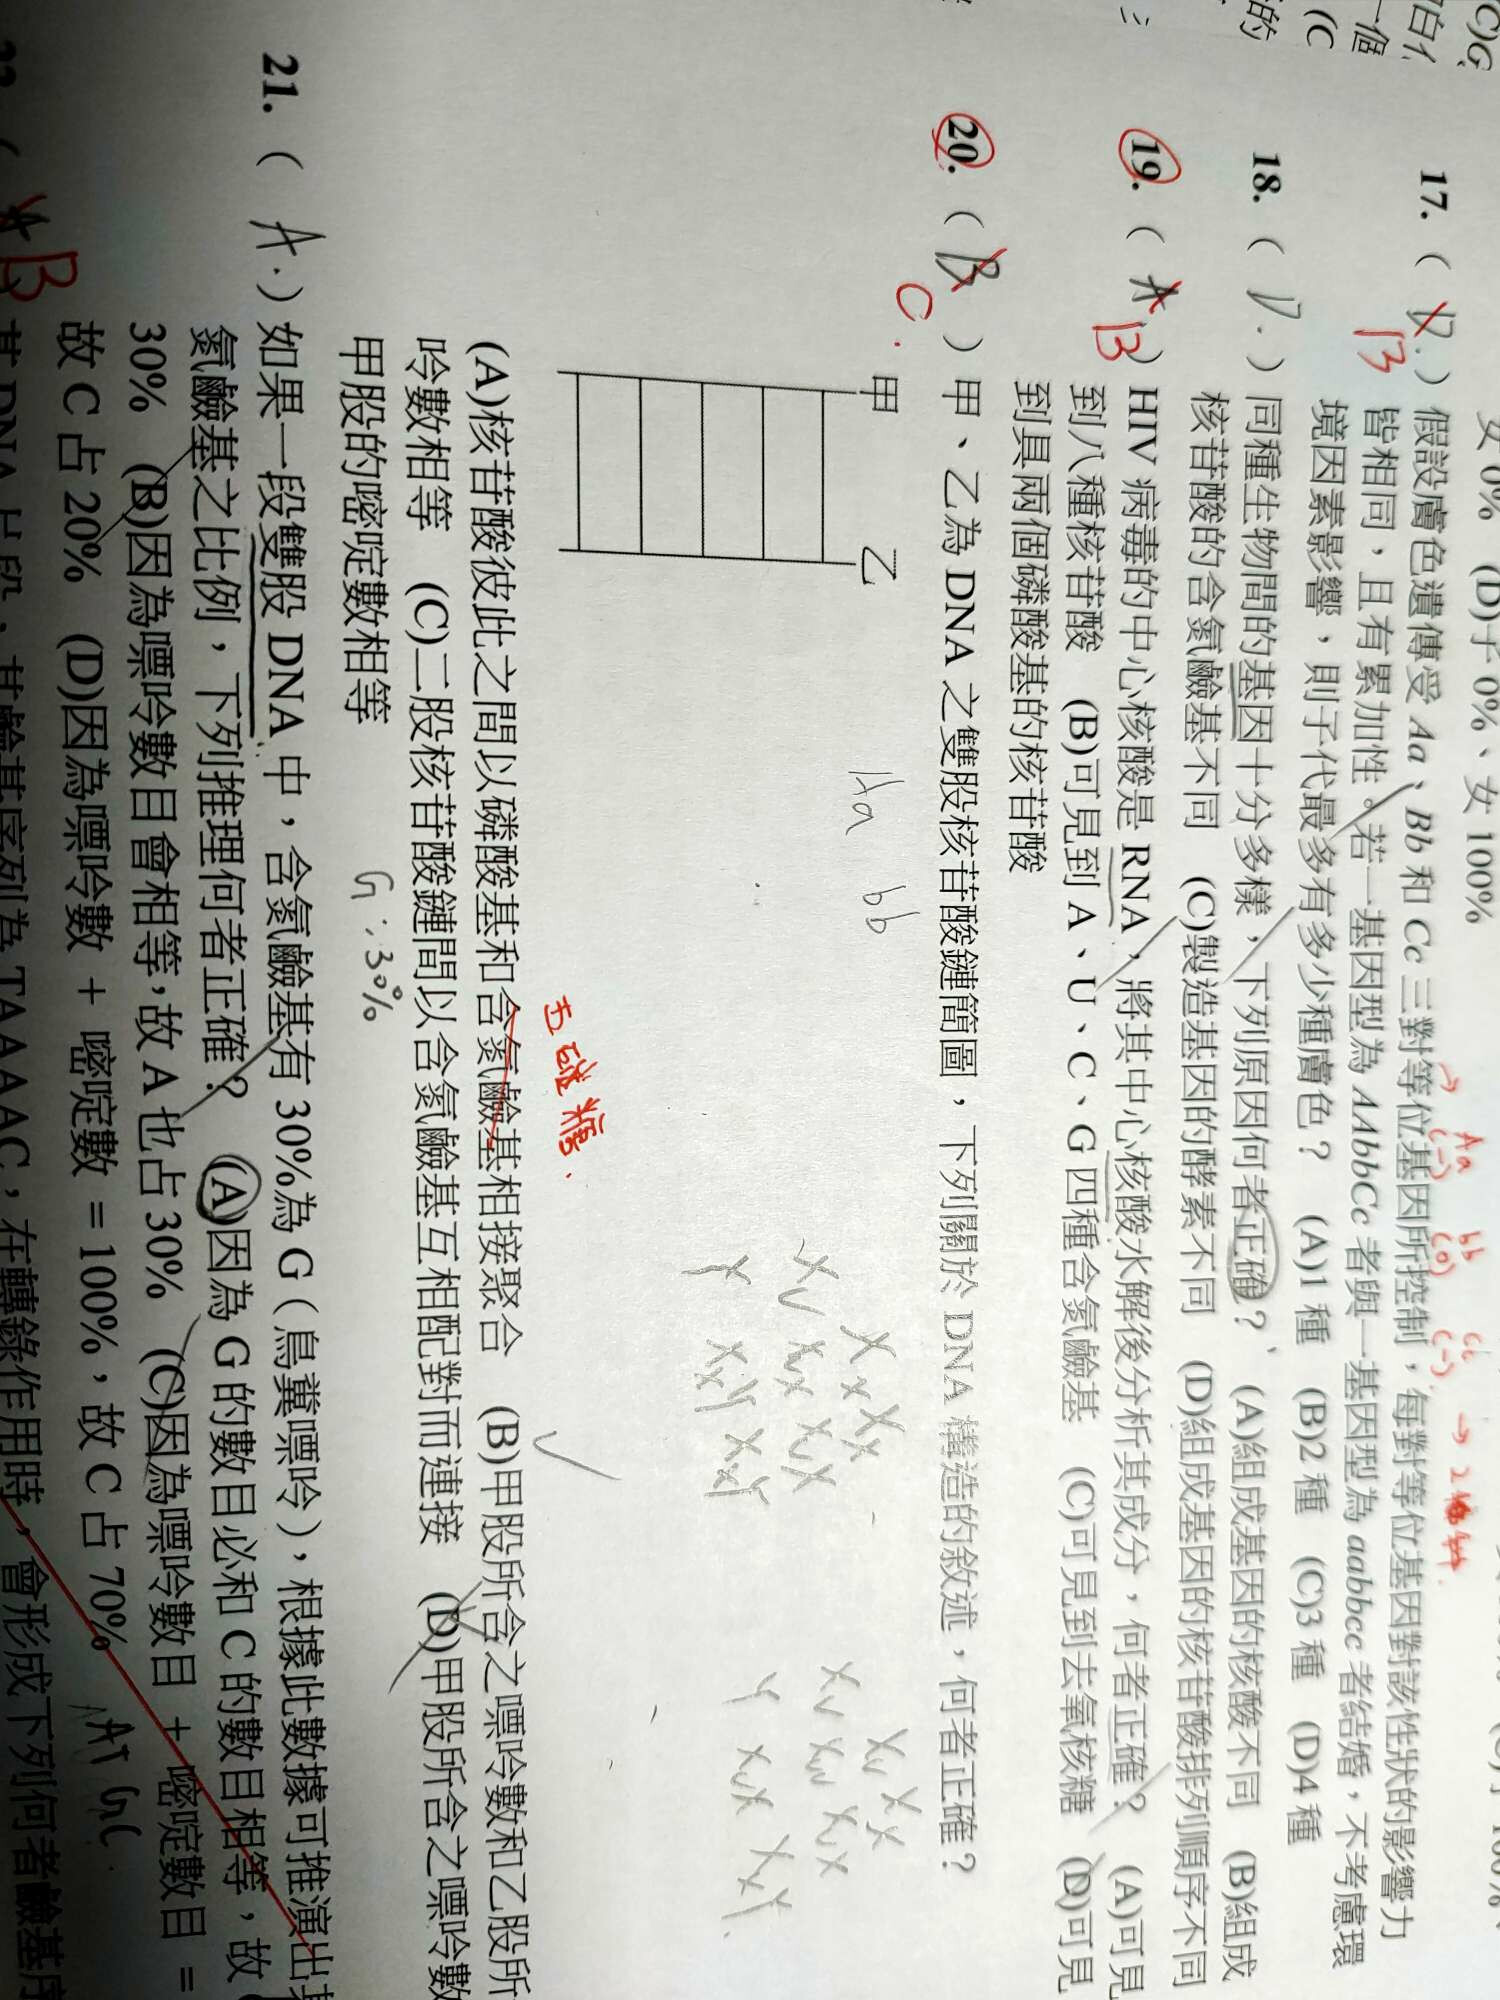 女 0% (D)子 0%、女 100%
17. ( D. ) 假設膚色遺傳受 Aa、Bb 和 Cc 三對等位基因所控制，每對等位基因對該性狀的影響力
B
皆相同，且有累加性。若一基因型為 AAbbCc 者與一基因型為 aabbcc 者結婚，不考慮環
境因素影響，則子代最多有多少種膚色？ (A)1 種 (B)2 種 (C)3 種 (D)4 種
Aa bb Cc
18. ( D. ) 同種生物間的基因十分多樣，下列原因何者正確？ (A)組成基因的核酸不同 (B)組成
核苷酸的含氮鹼基不同 (C)製造基因的酵素不同 (D)組成基因的核苷酸排列順序不同
19. ( A ) HIV 病毒的中心核酸是 RNA，將其中心核酸水解後分析其成分，何者正確？ (A)可見
B
到八種核苷酸 (B)可見到 A、U、C、G 四種含氮鹼基 (C)可見到去氧核糖 (D)可見
到具兩個磷酸基的核苷酸
20. ( B ) 甲、乙為 DNA 之雙股核苷酸鏈簡圖，下列關於 DNA 構造的敘述，何者正確？
C.
甲 乙
Aa bb
五碳糖.
(A)核苷酸彼此之間以磷酸基和含氮鹼基相接聚合 (B)甲股所含之嘌呤數和乙股所
呤數相等 (C)二股核苷酸鏈間以含氮鹼基互相配對而連接 (D)甲股所含之嘌呤數
甲股的嘧啶數相等
G:30%
21. ( A. ) 如果一段雙股 DNA 中，含氮鹼基有 30%為 G（鳥糞嘌呤），根據此數據可推演出
氮鹼基之比例，下列推理何者正確？ (A)因為 G 的數目必和 C 的數目相等，故
30% (B)因為嘌呤數目會相等，故 A 也占 30% (C)因為嘌呤數目 + 嘧啶數目 =
故 C 占 20% (D)因為嘌呤數 + 嘧啶數 = 100%，故 C 占 70%
AT GC
B